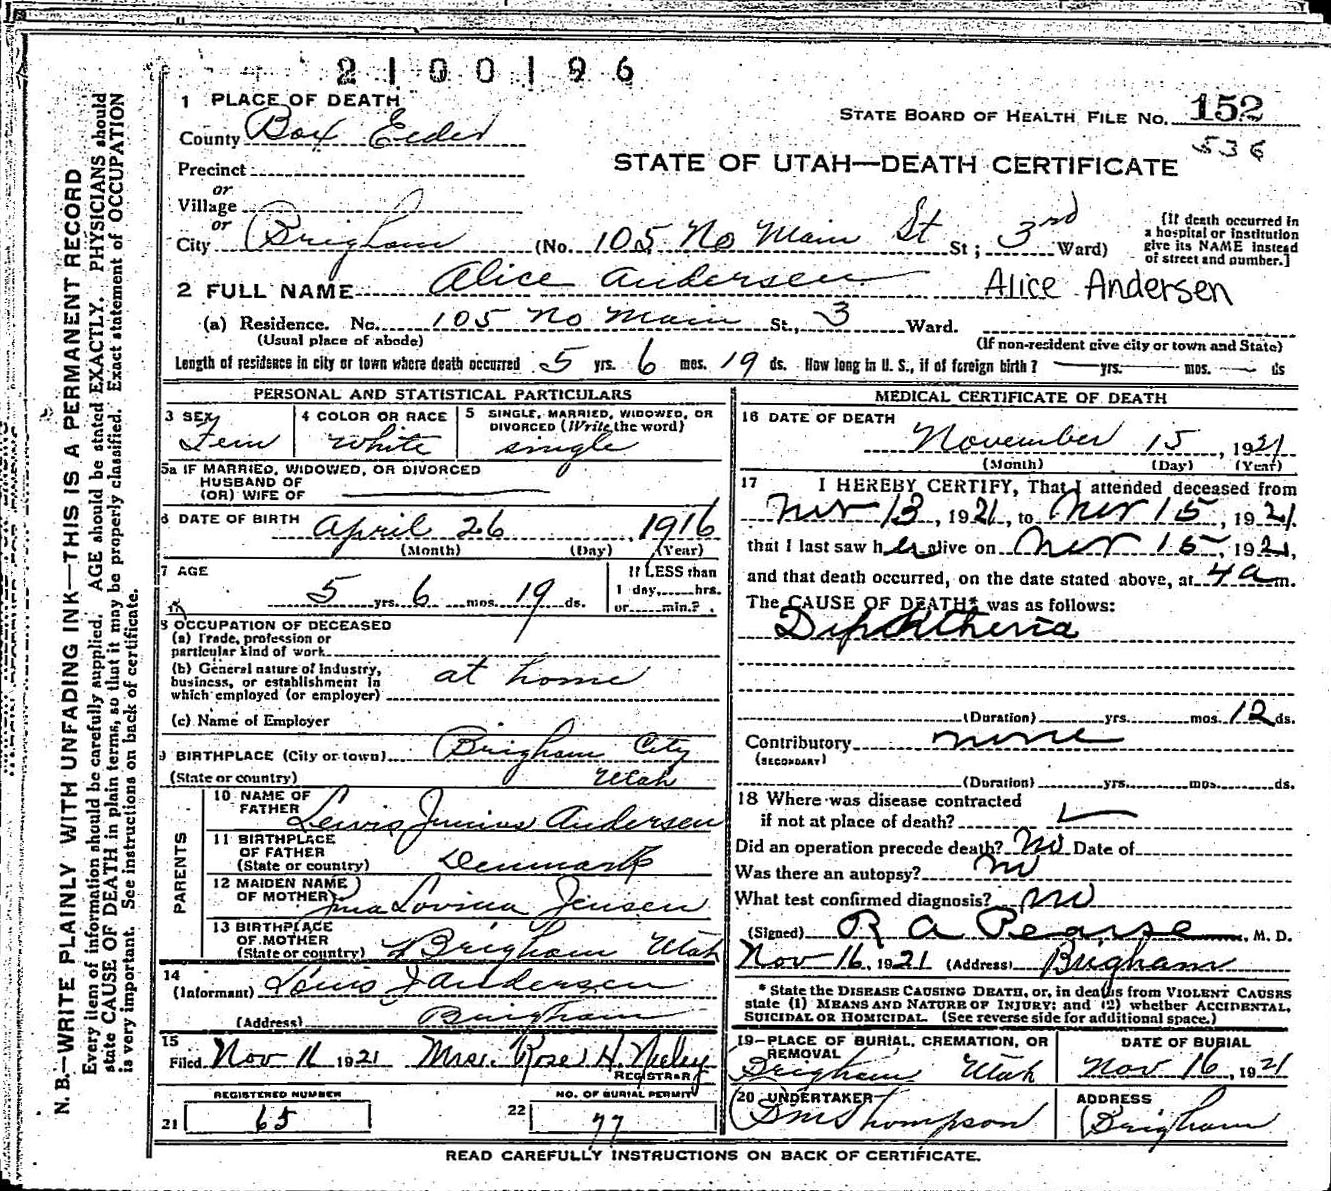 2100196
1 PLACE OF DEATH
STATE BOARD OF HEALTH FILE NO. 152
County Box Elder
536
STATE OF UTAH—DEATH CERTIFICATE
Precinct
or
Village
or
City Brigham (No. 105 No Main St St; 3rd Ward)
[If death occurred in
a hospital or institution
give its NAME instead
of street and number.]
2 FULL NAME Alice Andersen Alice Andersen
(a) Residence. No. 105 No Main St., 3 Ward.
(Usual place of abode) (If non-resident give city or town and State)
Length of residence in city or town where death occurred 5 yrs. 6 mos. 19 ds. How long in U. S., if of foreign birth? yrs. mos. ds
PERSONAL AND STATISTICAL PARTICULARS
3 SEX Fem
4 COLOR OR RACE white
5 SINGLE, MARRIED, WIDOWED, OR
DIVORCED (Write the word)
single
5a IF MARRIED, WIDOWED, OR DIVORCED
HUSBAND OF
(OR) WIFE OF
6 DATE OF BIRTH April 26, 1916
(Month) (Day) (Year)
7 AGE
5 yrs. 6 mos. 19 ds.
If LESS than
1 day, hrs.
or min.?
8 OCCUPATION OF DECEASED
(a) Trade, profession or
particular kind of work
(b) General nature of industry,
business, or establishment in
which employed (or employer)
at home
(c) Name of Employer
9 BIRTHPLACE (City or town) Brigham City
(State or country) Utah
PARENTS
10 NAME OF
FATHER Lewis Junius Andersen
11 BIRTHPLACE
OF FATHER
(State or country) Denmark
12 MAIDEN NAME
OF MOTHER Lovina Jensen
13 BIRTHPLACE
OF MOTHER
(State or country) Brigham Utah
14
(Informant) Louis J Andersen
(Address) Brigham
15
Filed Nov 16 1921 Mrs. Rose H. Neeley
REGISTRAR
REGISTERED NUMBER
21 65
NO. OF BURIAL PERMIT
22 77
MEDICAL CERTIFICATE OF DEATH
16 DATE OF DEATH
November 15, 1921
(Month) (Day) (Year)
17 I HEREBY CERTIFY, That I attended deceased from
Nov 13, 1921, to Nov 15, 1921.
that I last saw her alive on Nov 15, 1921,
and that death occurred, on the date stated above, at 4 a m.
The CAUSE OF DEATH* was as follows:
Diphtheria
(Duration) yrs. mos. 12 ds.
Contributory none
(SECONDARY)
(Duration) yrs. mos. ds.
18 Where was disease contracted
if not at place of death?
Did an operation precede death? No Date of
Was there an autopsy? no
What test confirmed diagnosis? no
(Signed) R A Pearse, M. D.
Nov 16, 1921 (Address) Brigham
* State the DISEASE CAUSING DEATH, or, in deaths from VIOLENT CAUSES
state (1) MEANS AND NATURE OF INJURY; and (2) whether ACCIDENTAL,
SUICIDAL OR HOMICIDAL. (See reverse side for additional space.)
19—PLACE OF BURIAL, CREMATION, OR
REMOVAL
Brigham Utah
DATE OF BURIAL
Nov 16, 1921
20 UNDERTAKER
Thompson
ADDRESS
Brigham
READ CAREFULLY INSTRUCTIONS ON BACK OF CERTIFICATE.
N. B.—WRITE PLAINLY WITH UNFADING INK—THIS IS A PERMANENT RECORD
Every item of information should be carefully supplied. AGE should be stated EXACTLY. PHYSICIANS should
state CAUSE OF DEATH in plain terms, so that it may be properly classified. Exact statement of OCCUPATION
is very important. See instructions on back of certificate.